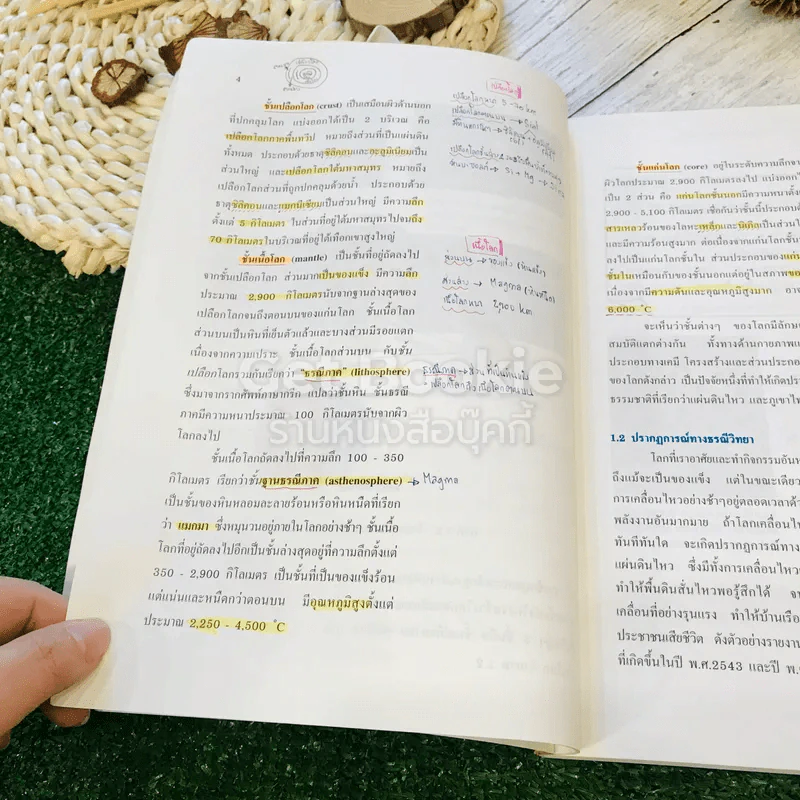 4
ชั้นเปลือกโลก (crust) เป็นเสมือนผิวด้านนอก
ที่ปกคลุมโลก แบ่งออกได้เป็น 2 บริเวณ คือ
เปลือกโลกภาคพื้นทวีป หมายถึงส่วนที่เป็นแผ่นดิน
ทั้งหมด ประกอบด้วยธาตุซิลิคอนและอะลูมิเนียมเป็น
ส่วนใหญ่ และเปลือกโลกใต้มหาสมุทร หมายถึง
เปลือกโลกส่วนที่ถูกปกคลุมด้วยน้ำ ประกอบด้วย
ธาตุซิลิคอนและแมกนีเซียมเป็นส่วนใหญ่ มีความลึก
ตั้งแต่ 5 กิโลเมตร ในส่วนที่อยู่ใต้มหาสมุทรไปจนถึง
70 กิโลเมตรในบริเวณที่อยู่ใต้เทือกเขาสูงใหญ่
ชั้นเนื้อโลก (mantle) เป็นชั้นที่อยู่ถัดลงไป
จากชั้นเปลือกโลก ส่วนมากเป็นของแข็ง มีความลึก
ประมาณ 2,900 กิโลเมตรนับจากฐานล่างสุดของ
เปลือกโลกจนถึงตอนบนของแก่นโลก ชั้นเนื้อโลก
ส่วนบนเป็นหินที่เย็นตัวแล้วและบางส่วนมีรอยแตก
เนื่องจากความเปราะ ชั้นเนื้อโลกส่วนบน กับชั้น
เปลือกโลกรวมกันเรียกว่า "ธรณีภาค" (lithosphere)
ซึ่งมาจากรากศัพท์ภาษากรีก แปลว่าชั้นหิน ชั้นธรณี
ภาคมีความหนาประมาณ 100 กิโลเมตรนับจากผิว
โลกลงไป
ชั้นเนื้อโลกถัดลงไปที่ความลึก 100 - 350
กิโลเมตร เรียกว่าชั้นฐานธรณีภาค (asthenosphere) → Magma
เป็นชั้นของหินหลอมละลายร้อนหรือหินหนืดที่เรียก
ว่า แมกมา ซึ่งหมุนวนอยู่ภายในโลกอย่างช้าๆ ชั้นเนื้อ
โลกที่อยู่ถัดลงไปอีกเป็นชั้นล่างสุดอยู่ที่ความลึกตั้งแต่
350 - 2,900 กิโลเมตร เป็นชั้นที่เป็นของแข็งร้อน
แต่แน่นและหนืดกว่าตอนบน มีอุณหภูมิสูงตั้งแต่
ประมาณ 2,250 - 4,500 °C
เปลือกโลก
เนื้อโลก
ส่วนบน → ของแข็ง
ส่วนล่าง → Magma
เนื้อโลกหนา 2,900 km
ธรณีภาค →
Get Bookie
ร้านหนังสือบุ๊คกี้
ชั้นแก่นโลก (core) อยู่ในระดับความลึกจาก
ผิวโลกประมาณ 2,900 กิโลเมตรลงไป แบ่งออกไ
เป็น 2 ส่วน คือ แก่นโลกชั้นนอกมีความหนาตั้ง
2,900 - 5,100 กิโลเมตร เชื่อกันว่าชั้นนี้ประกอบด้
สารเหลวร้อนของโลหะเหล็กและนิเกิลเป็นส่วนให
และมีความร้อนสูงมาก ต่อเนื่องจากแก่นโลกชั้นน
ลงไปเป็นแก่นโลกชั้นใน ส่วนประกอบของแก่น
ชั้นในเหมือนกับของชั้นนอกแต่อยู่ในสภาพของ
เนื่องจากมีความดันและอุณหภูมิสูงมาก อาจ
6,000 °C
จะเห็นว่าชั้นต่างๆ ของโลกมีลักษ
สมบัติแตกต่างกัน ทั้งทางด้านกายภาพแ
ประกอบทางเคมี โครงสร้างและส่วนประกอ
ของโลกดังกล่าว เป็นปัจจัยหนึ่งที่ทำให้เกิดปรา
ธรรมชาติที่เรียกว่าแผ่นดินไหว และภูเขาไฟ
1.2 ปรากฏการณ์ทางธรณีวิทยา
โลกที่เราอาศัยและทำกิจกรรมอันห
ถึงแม้จะเป็นของแข็ง แต่ในขณะเดียว
การเคลื่อนไหวอย่างช้าๆอยู่ตลอดเวลาด้ว
พลังงานอันมากมาย ถ้าโลกเคลื่อนไห
ทันทีทันใด จะเกิดปรากฏการณ์ทาง
แผ่นดินไหว ซึ่งมีทั้งการเคลื่อนไหว
ทำให้พื้นดินสั่นไหวพอรู้สึกได้ จา
เคลื่อนที่อย่างรุนแรง ทำให้บ้านเรือ
ประชาชนเสียชีวิต ดังตัวอย่างรายงาน
ที่เกิดขึ้นในปี พ.ศ.2543 และปี พ.